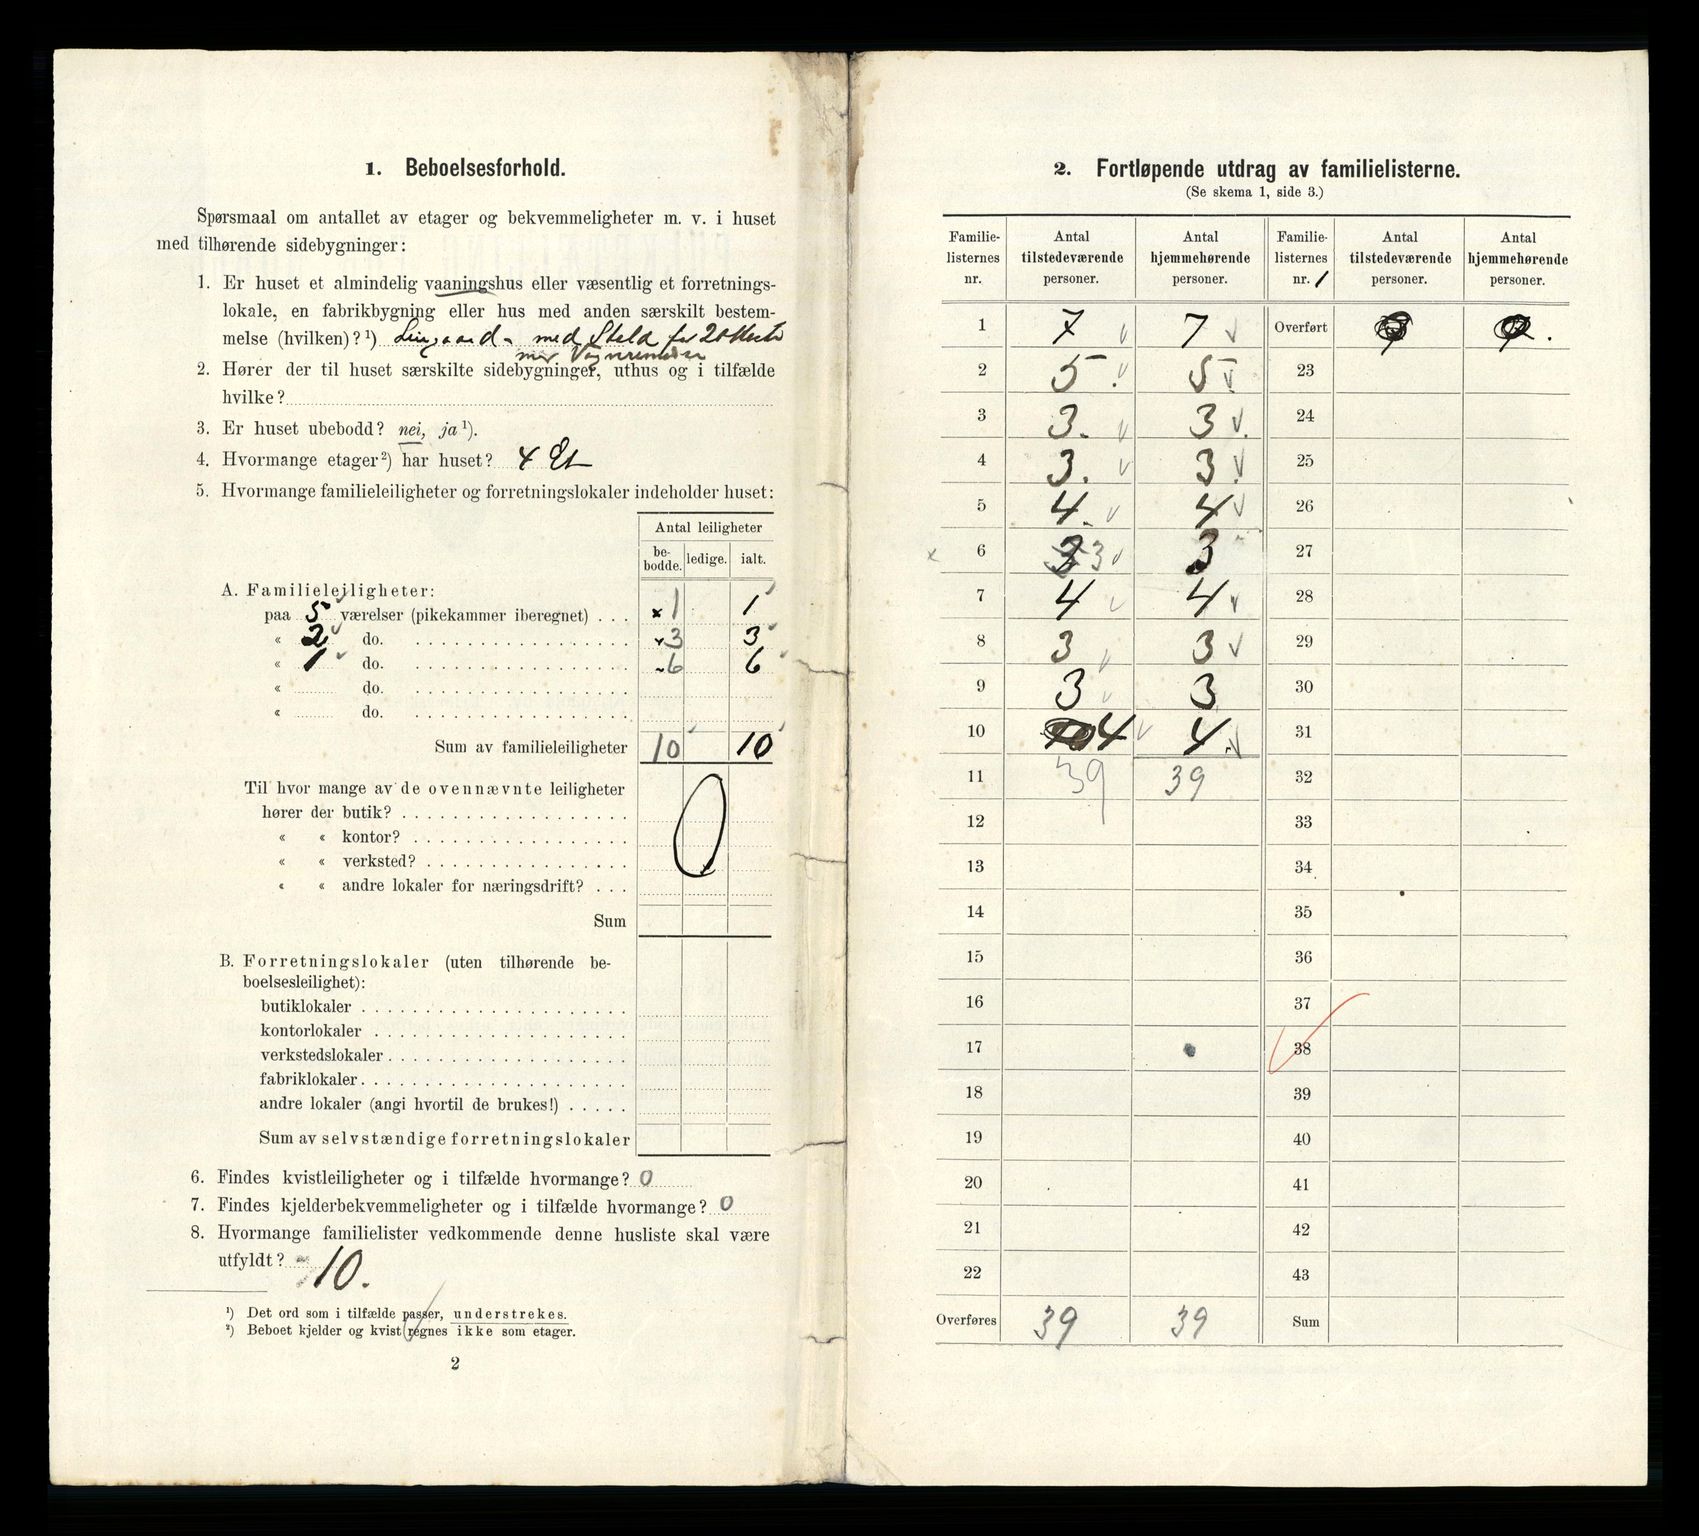 1. Beboelsesforhold.
Spørsmaal om antallet av etager og bekvemmeligheter m. v. i huset
med tilhørende sidebygninger:
1. Er huset et almindelig vaaningshus eller væsentlig et forretnings-
lokale, en fabrikbygning eller hus med anden særskilt bestem-
melse (hvilken)? ¹) Leiegaard - med Stald for 20 Heste
2. Hører der til huset særskilte sidebygninger, uthus og i tilfælde
hvilke?
3. Er huset ubebodd? nei, ja ¹).
4. Hvormange etager ²) har huset? 4 Et
5. Hvormange familieleiligheter og forretningslokaler indeholder huset:
Antal leiligheter
be-bodde. ledige. ialt.
A. Familieleiligheter:
paa 5 værelser (pikekammer iberegnet) . . . x 1 1
« 2 do. 3 3
« 1 do. 6 6
« do.
« do.
Sum av familieleiligheter 10 10
Til hvor mange av de ovennævnte leiligheter
hører der butik? 0
« « kontor?
« « verksted?
« « andre lokaler for næringsdrift? . . .
Sum
B. Forretningslokaler (uten tilhørende be-
boelsesleilighet):
butiklokaler
kontorlokaler
verkstedslokaler
fabriklokaler
andre lokaler (angi hvortil de brukes!)
Sum av selvstændige forretningslokaler
6. Findes kvistleiligheter og i tilfælde hvormange? 0
7. Findes kjelderbekvemmeligheter og i tilfælde hvormange? 0
8. Hvormange familielister vedkommende denne husliste skal være
utfyldt? 10.
¹) Det ord som i tilfælde passer, understrekes.
²) Beboet kjelder og kvist regnes ikke som etager.
2
2. Fortløpende utdrag av familielisterne.
(Se skema 1, side 3.)
Familie-listernes nr. Antal tilstedeværende personer. Antal hjemmehørende personer. Familie-listernes nr. 1 Antal tilstedeværende personer. Antal hjemmehørende personer.
1 7 7 Overført
2 5. 5. 23
3 3. 3. 24
4 3. 3. 25
5 4. 4 26
x 6 3 3 27
7 4 4 28
8 3 3 29
9 3 3 30
10 4 4. 31
11 39 39 32
12 33
13 34
14 35
15 36
16 37
17 38
18 39
19 40
20 41
21 42
22 43
Overføres 39 39 Sum